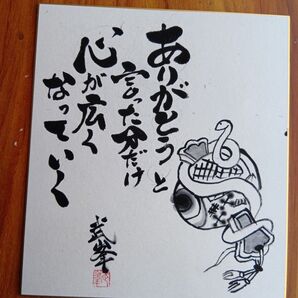 ありがとうと
言った分だけ
心が広く
なっていく
武峯